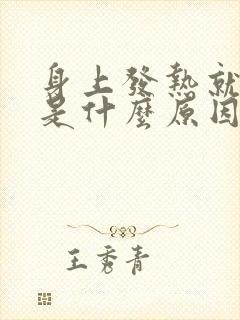 身上發熱就
是什麼原因
王秀青